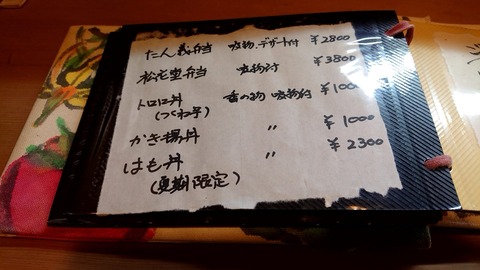 たん義弁当 吸物、デザート付 ¥2800
松花堂弁当 吸物付 ¥3800
トロロ丼 香の物 吸物付 ¥1000
(つくね芋)
かき揚丼 〃 ¥1000
はも丼 〃 ¥2300
(夏期限定)